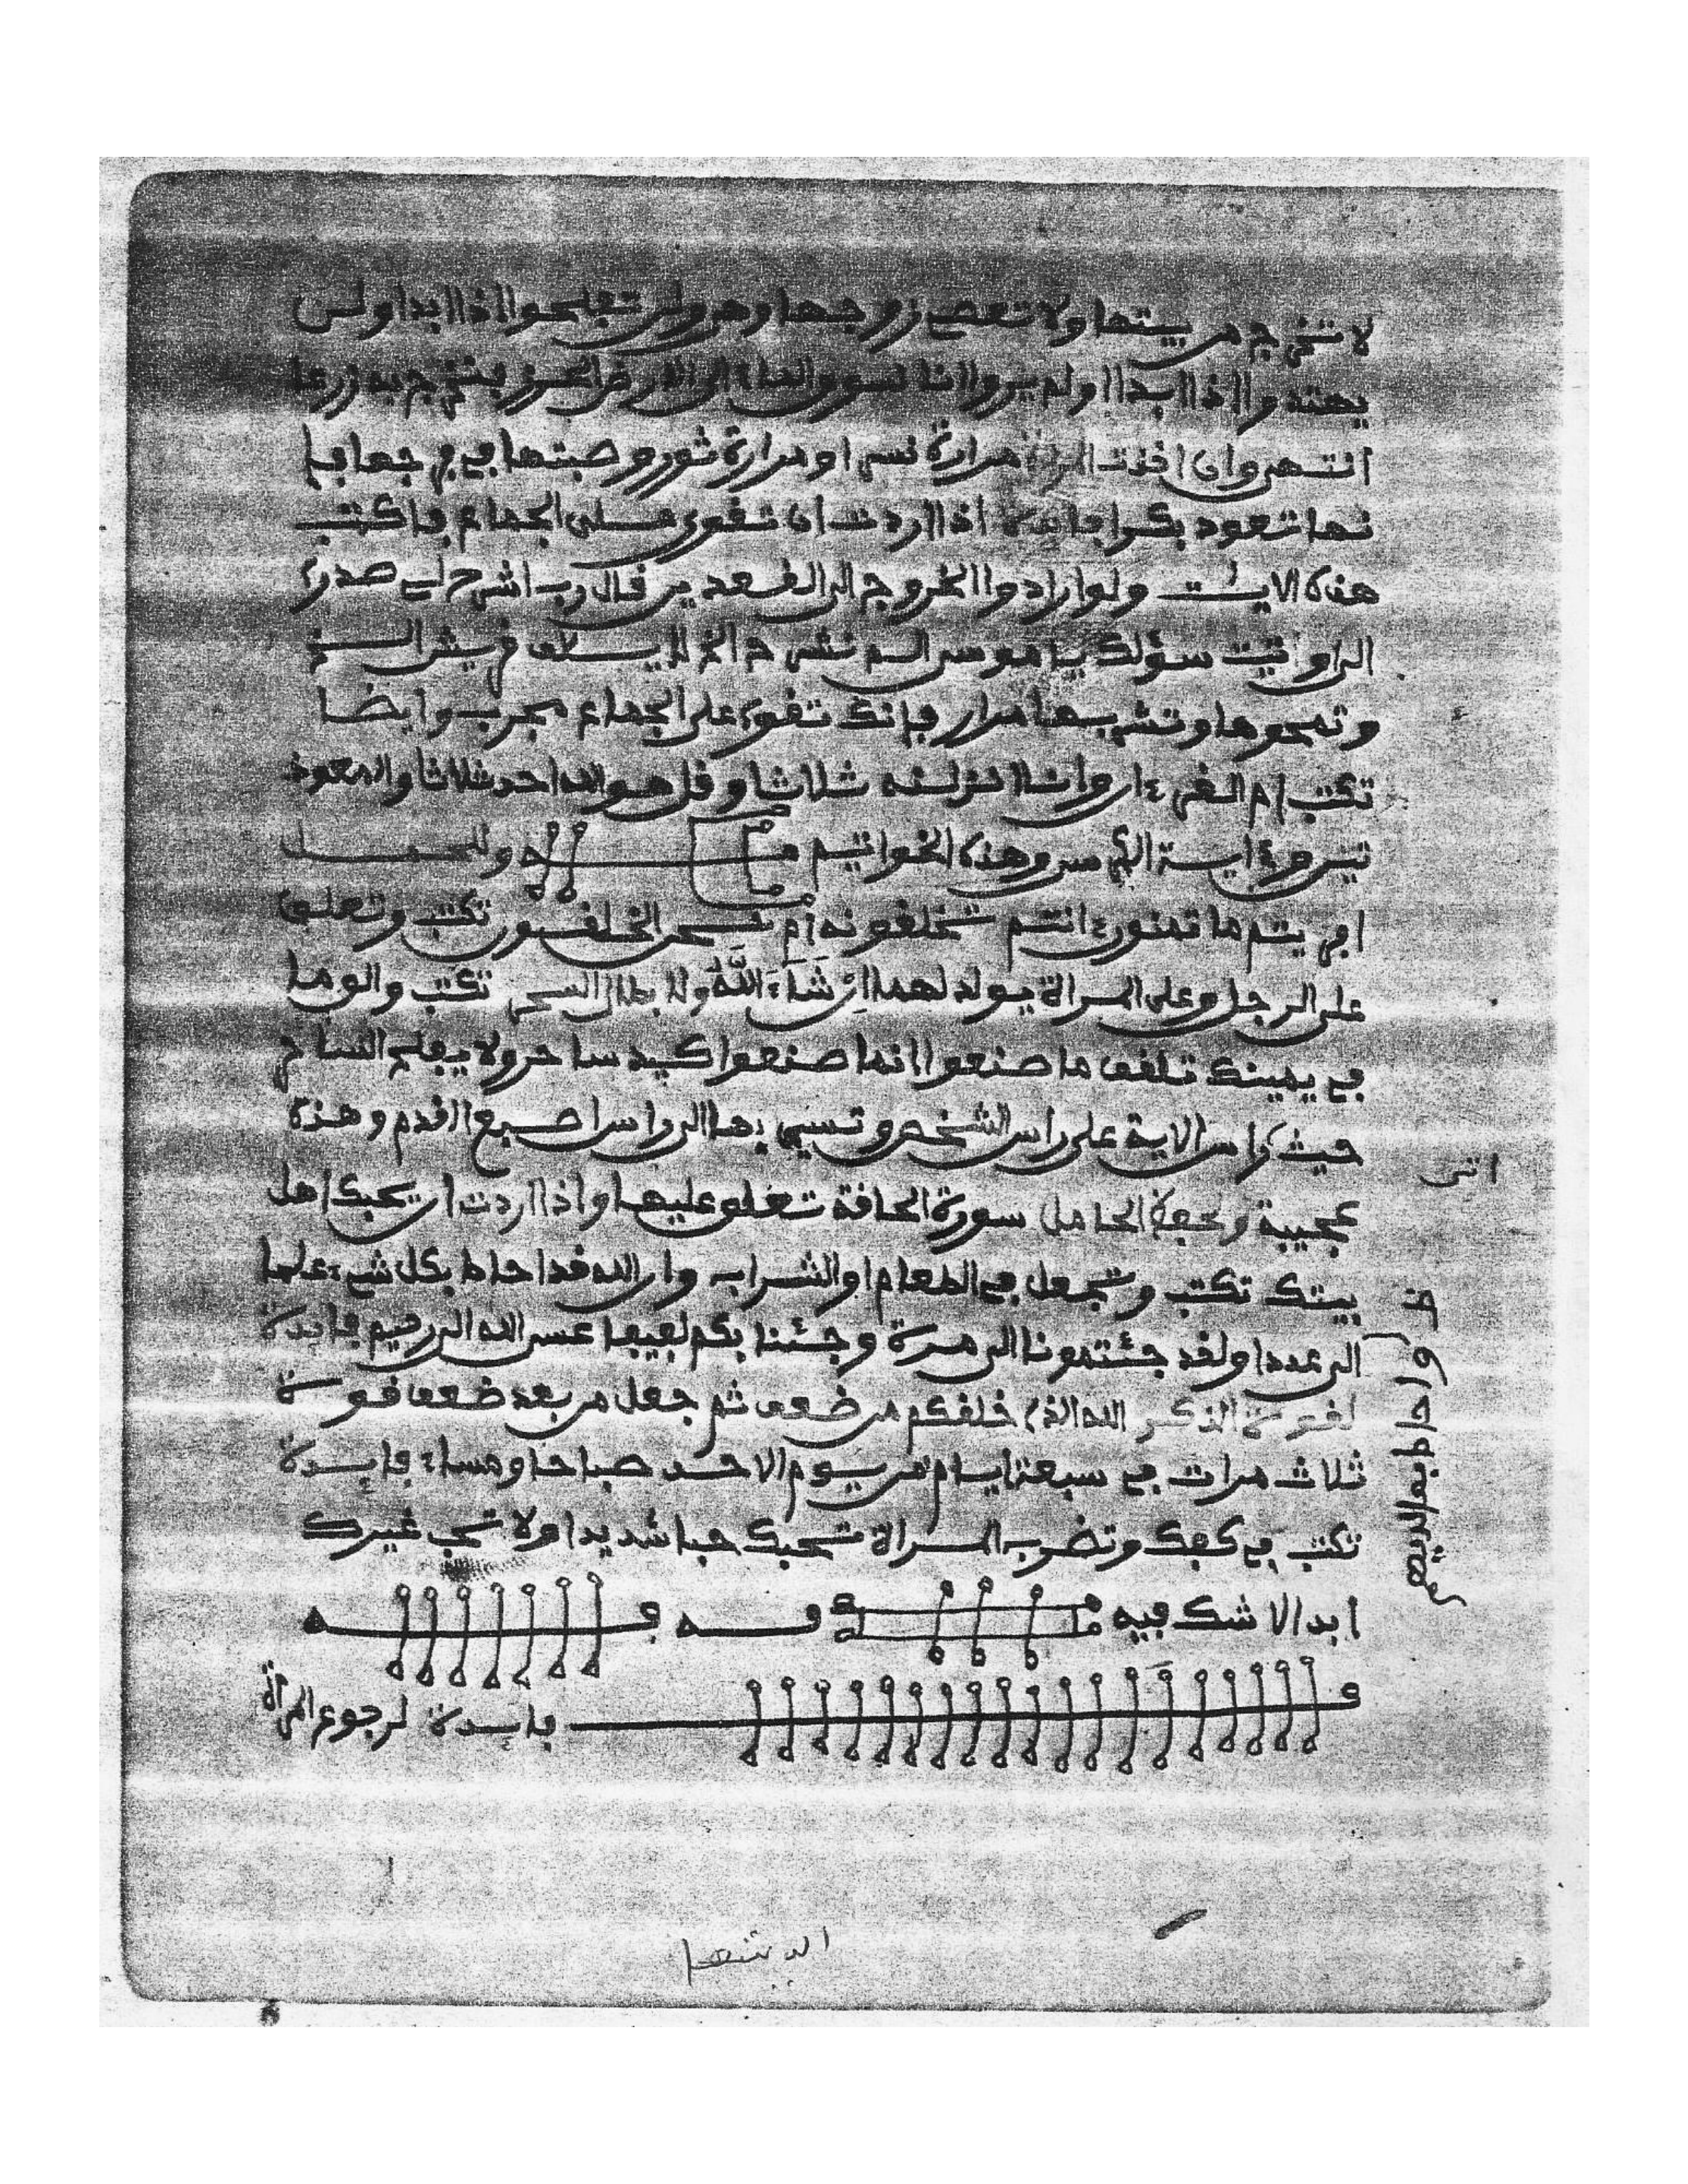 لا تخرج من بيتها ولا تعصى زوجها وهو ولن تفلحوا اذا ابدا ولن
يهتدوا اذا ابدا اولم يروا انا نسوق الماء الى الارض الجرز فنخرج به زرعا
انتهى وان اخذت المراة مرارة نسر او مرارة ثور وصبتها في فرجها فا
نها تعود بكرا فايدة اذا اردت ان تقوى على الجماع فاكتب
هذه الايات ولو ارادوا الخروج الى القعدين قال رب اشرح لي صدري
الى اوتيت سؤلك يا موسى الم نشرح الخ لايلاف قريش الخ
وتمحوها وتشربها مرار فإنك تقوى على الجماع مجرب وايضا
تكتب ام القرءان وانا انزلنه ثلاثا وقل هو الله احد ثلاثا والمعوذ
تين وءاية الكرسي وهذه الخواتيم وللحمل
افريتم ما تمنون ءانتم تخلقونه أم نحن الخلقون تكتب وتعلق
على الرجل وعلى المراة يولد لهما إن شَاءَ اللَّهُ ولابطال السحر تكتب والق ما
في يمينك تلقف ما صنعوا انما صنعوا كيد ساحر ولا يفلح الساحر
حيث اتى من الاية على راس الشخص وتسبي بها الى راس اصبع القدم وهذه
عجيبة ولحفظ الحامل سورة الحاقة تعلق عليها واذا اردت ان يحبك اهل
بيتك تكتب وتجعل في الطعام او الشراب وان الله قد احاط بكل شيء علما
الى عددا ولقد جئتمونا الى مرة وجئنا بكم لفيفا عسى الله الى رحيم فايدة
لقوة الذكر الله الذي خلقكم من ضعف ثم جعل من بعد ضعف قوة
ثلاث مرات في سبعة ايام من يوم الاحد صباحا ومساء فايدة
تكتب في كفك وتضرب المراة تحبك حبا شديدا ولا تحب غيرك
ابدا لا شك فيه
فايدة لرجوع المراة
اتى
واحاط بما لديهم